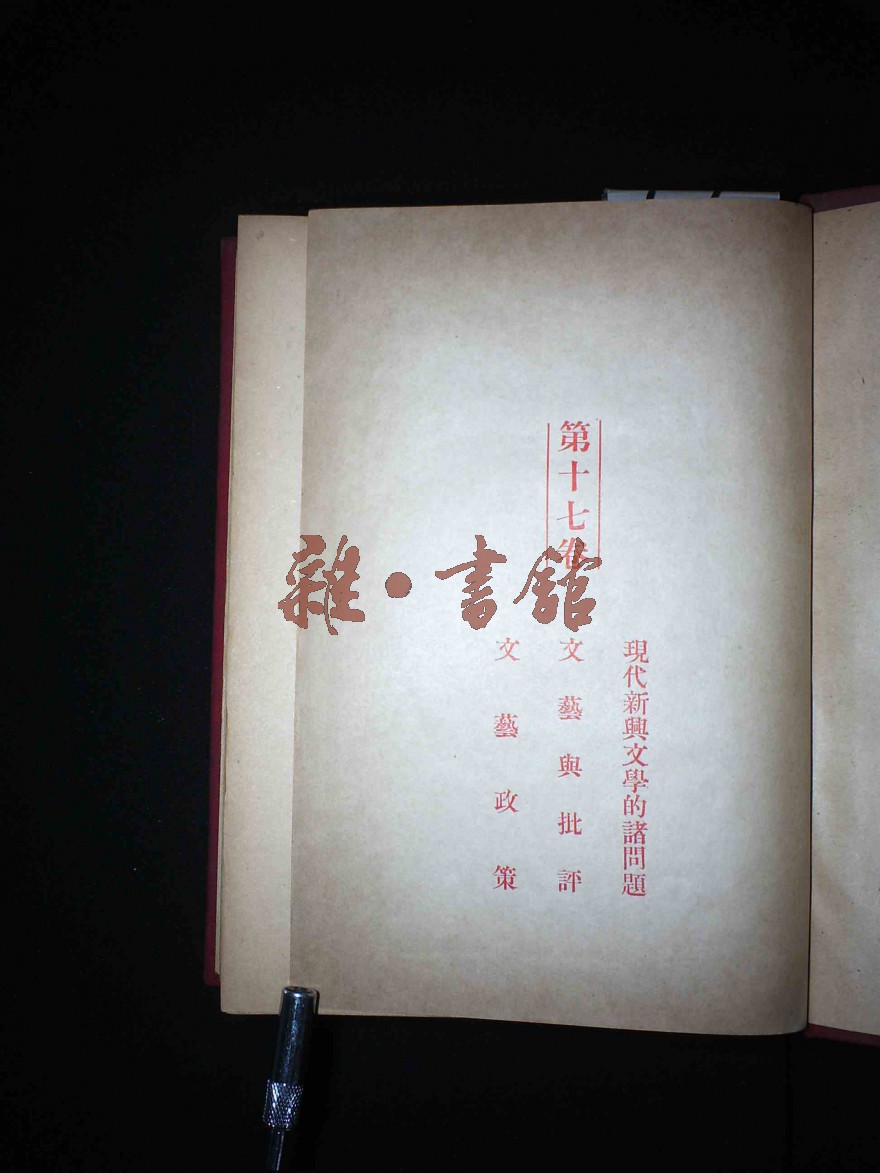 第十七卷
現代新興文學的諸問題
文藝與批評
文藝政策
雜·書館